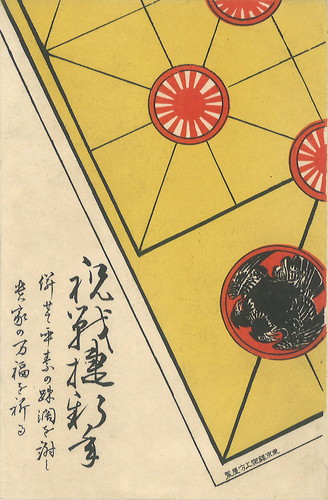 祝戦捷新年
併せて平素の疎濶を謝し
貴家の万福を祈る
東京銀座上方屋製